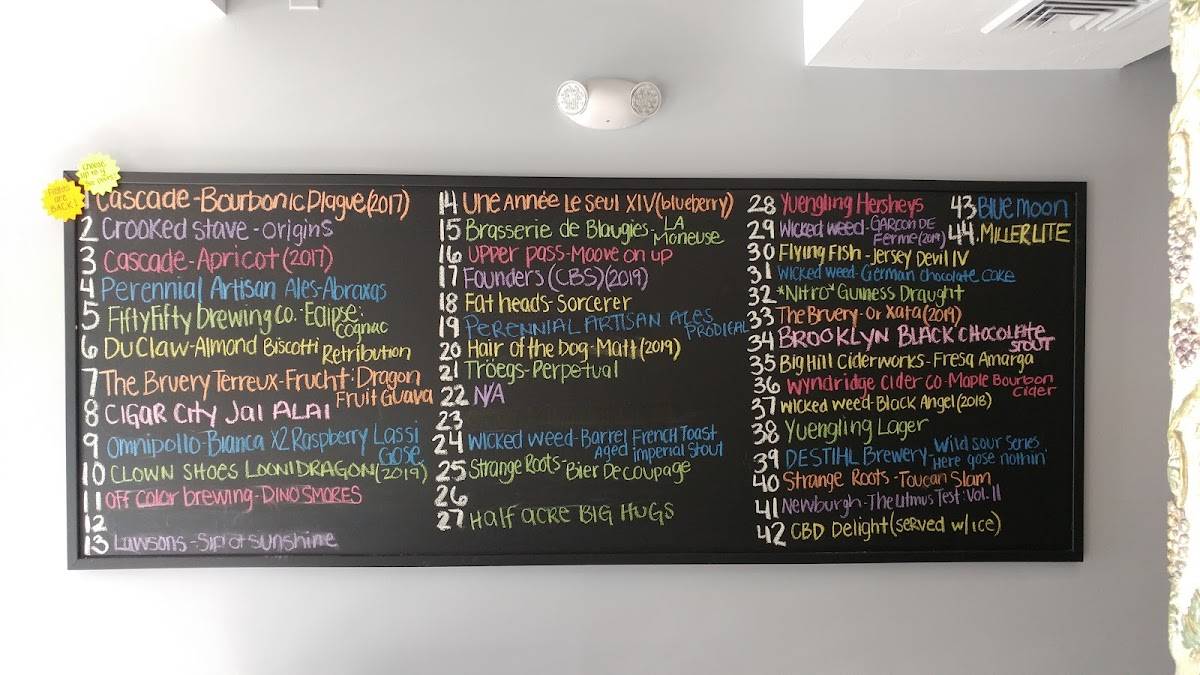 Flights are BACK!
choose up to 4
1 Cascade-Bourbonic Plague(2017)
2 Crooked stave-origins
3 Cascade-Apricot(2017)
4 Perennial Artisan Ales-Abraxas
5 FiftyFifty brewing co.-Eclipse:
Cognac
6 DuClaw-Almond Biscotti
Retribution
7 The Bruery Terreux-Frucht: Dragon
Fruit Guava
8 CIGAR CITY JAI ALAI
9 Omnipollo-Bianca X2 Raspberry Lassi
Gose
10 CLOWN SHOES LOONIDRAGON(2019)
11 off color brewing-DINO SMORES
12
13 Lawsons-Sip of sunshine
14 Une Année Le Seul XIV(blueberry)
15 Brasserie de Blaugies-LA
Moneuse
16 UPPER pass-Moove on up
17 Founders (CBS)(2019)
18 Fat heads-Sorcerer
19 PERENNIAL ARTISAN ALES
PRODIGAL
20 Hair of the Dog-Matt(2019)
21 Tröegs-Perpetual
22 N/A
23
24 Wicked weed-Barrel French Toast
Aged imperial stout
25 Strange Roots-Bier Decoupage
26
27 Half acre BIG HUGS
28 Yuengling Hersheys
29 Wicked weed-GARCON DE
Ferme(2019)
30 Flying Fish-Jersey Devil IV
31 Wicked weed-German chocolate cake
32 *Nitro* Guiness Draught
33 The Bruery-Or Xata(2019)
34 BROOKLYN BLACK CHOCOLATE
STOUT
35 Big Hill Ciderworks-Fresa Amarga
36 Wyndridge cider co-Maple Bourbon
Cider
37 wicked weed-Black Angel(2018)
38 Yuengling Lager
39 DESTIHL Brewery-Wild sour series
Here gose nothin'
40 Strange Roots-Toucan Slam
41 Newburgh-The Litmus Test: Vol. II
42 CBD Delight(served w/ice)
43 Blue moon
44. MILLER LITE